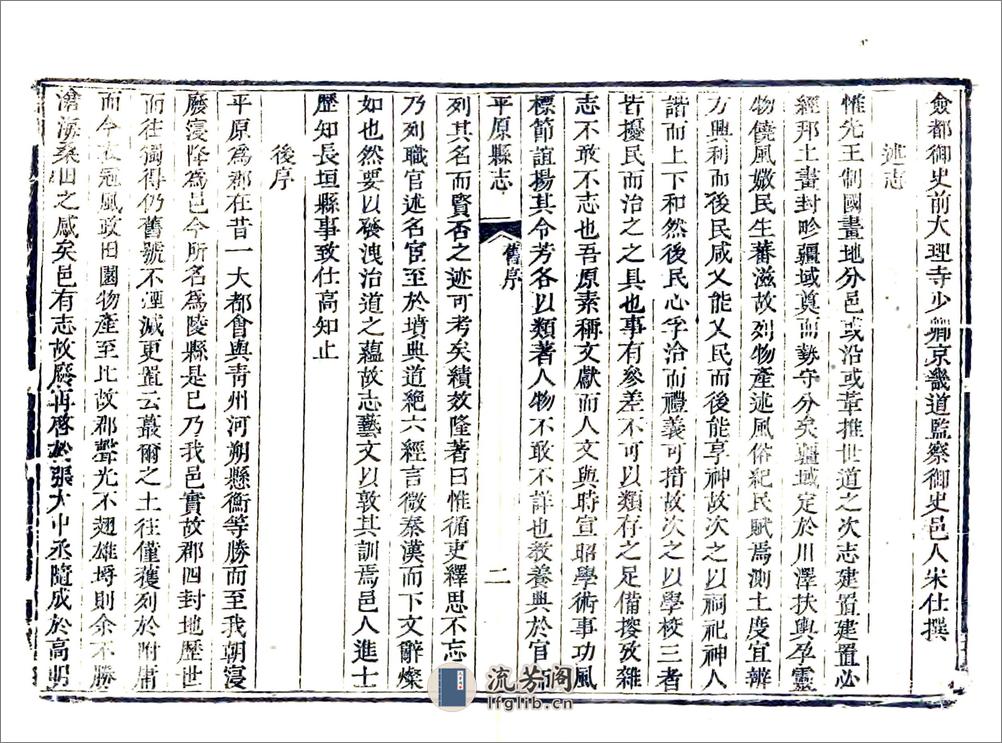 僉都御史前大理寺少卿京畿道監察御史邑人宋仕撰
述志
惟先王制國畫地分邑或沿或革推世道之次志建置建置必
經邦土畫封畛疆域奠而勢守分矣疆域定於川澤扶輿孕靈
物儀風媺民生蕃滋故列物產述風俗紀民賦焉測土度宜辨
方興利而後民咸乂能乂民而後能享神故次之以祠祀神人
諧而上下和然後民心孚洽而禮義可措故次之以學校三者
皆擾民而治之之具也事有參差不可以類存之足備採攷雜
志不敢不志也吾原素稱文獻而人文與時宣昭學術事功風
標節誼揚其令芳各以類著人物不敢不詳也教養典於官師
列其名而賢否之迹可考矣績效隆著曰惟循吏繹思不忘
乃列職官述名宦至於墳典道絶六經言微秦漢而下文辭燦
如也然要以發洩治道之蘊故志藝文以敦其訓焉邑人進士
歷知長垣縣事致仕高知止
後序
平原爲郡在昔一大都會與青州河朔縣衡等勝而至我朝寖
廢寖降爲邑今所名爲陵縣是已乃我邑實故郡四封地歷世
而往獨得仍舊號不湮滅更置云蕞爾之土往僅獲列於附庸
而今衣冠風政田園物產至比故郡聲光不翅雄埒則余不勝
滄海桑田之感矣邑有志故廢再啓於張大中丞隨成於高明
平原縣志
舊序
二
流芳阁
lfglib.cn